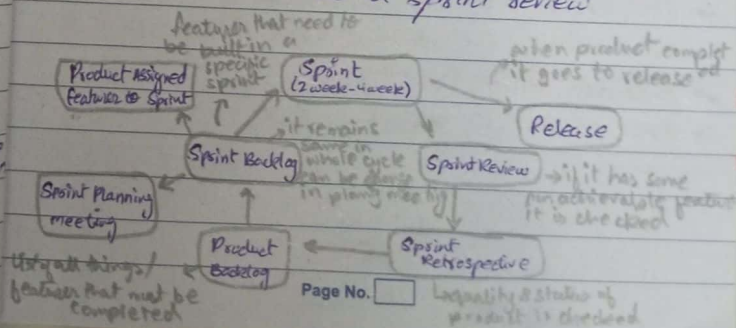 sprint review
features that need to
be built in a
specific
sprint
Product Assigned
features to Sprint
Sprint
(2 week-4 week)
when product complet
ed
it goes to release
Release
Sprint Backlog
it remains
same in
whole cycle
can be
in planing meeting
Sprint Review
if it has some
it is checked
Sprint Planning
meeting
Product
Backlog
Sprint
Retrospective
all things/
features that must be
completed
Page No.
quality & status of
product is checked